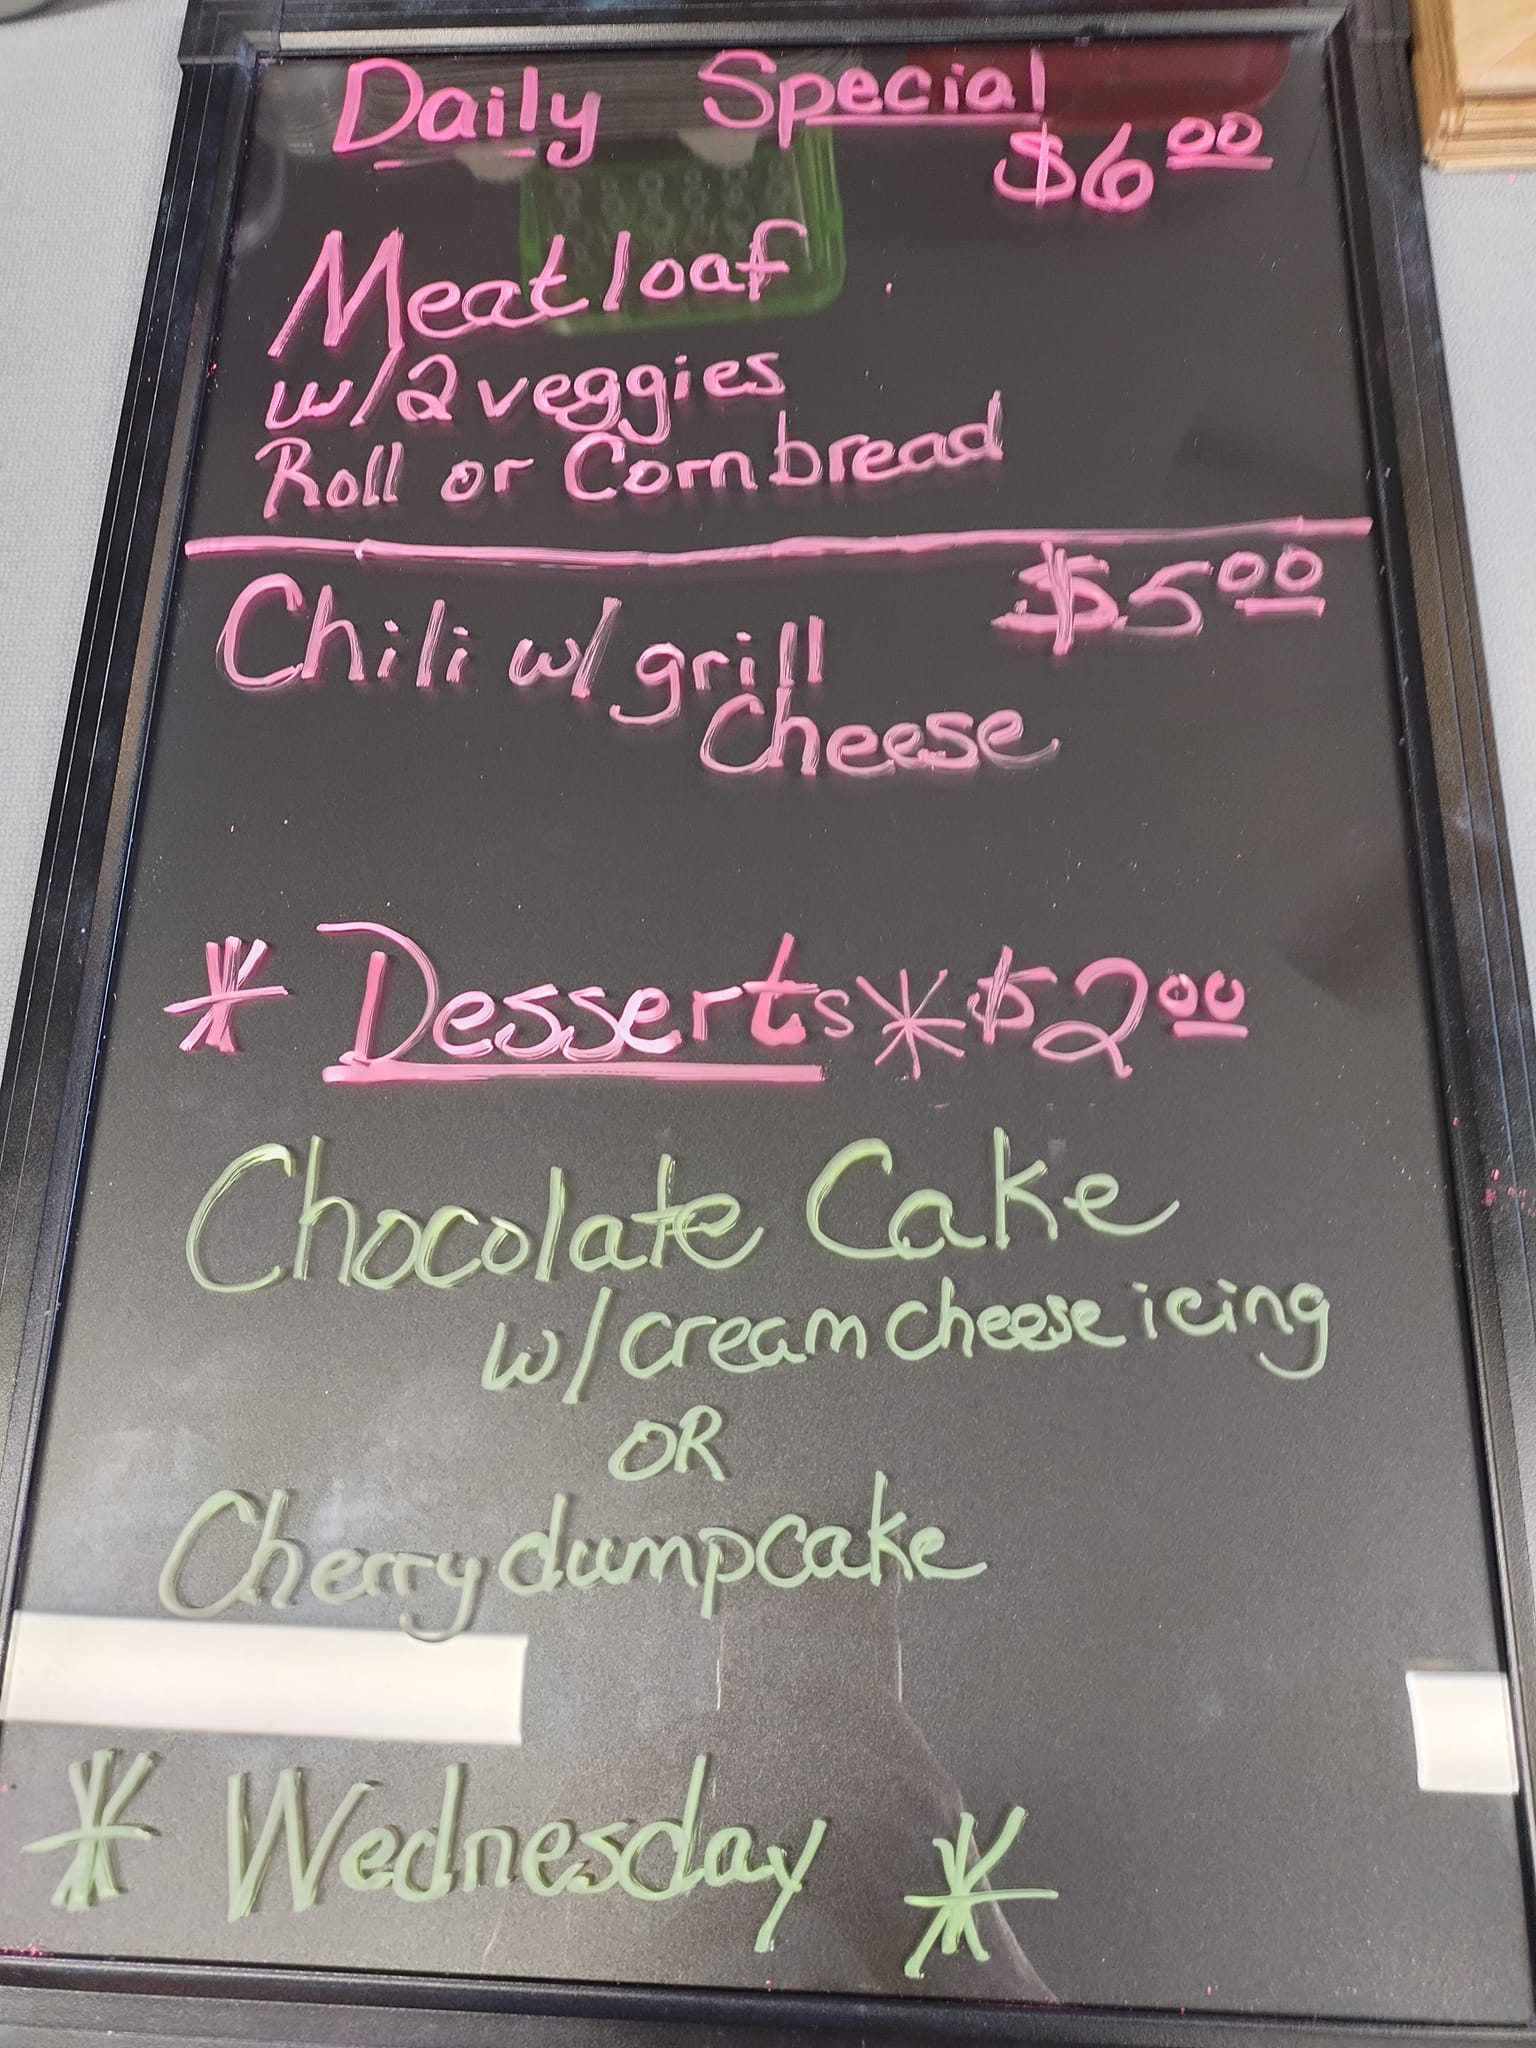 Daily Special
$6.00
Meatloaf
w/2 veggies
Roll or Cornbread
Chili w/ grill $5.00
Cheese
* Desserts * $2.00
Chocolate Cake
w/ cream cheese icing
OR
Cherry dumpcake
* Wednesday *